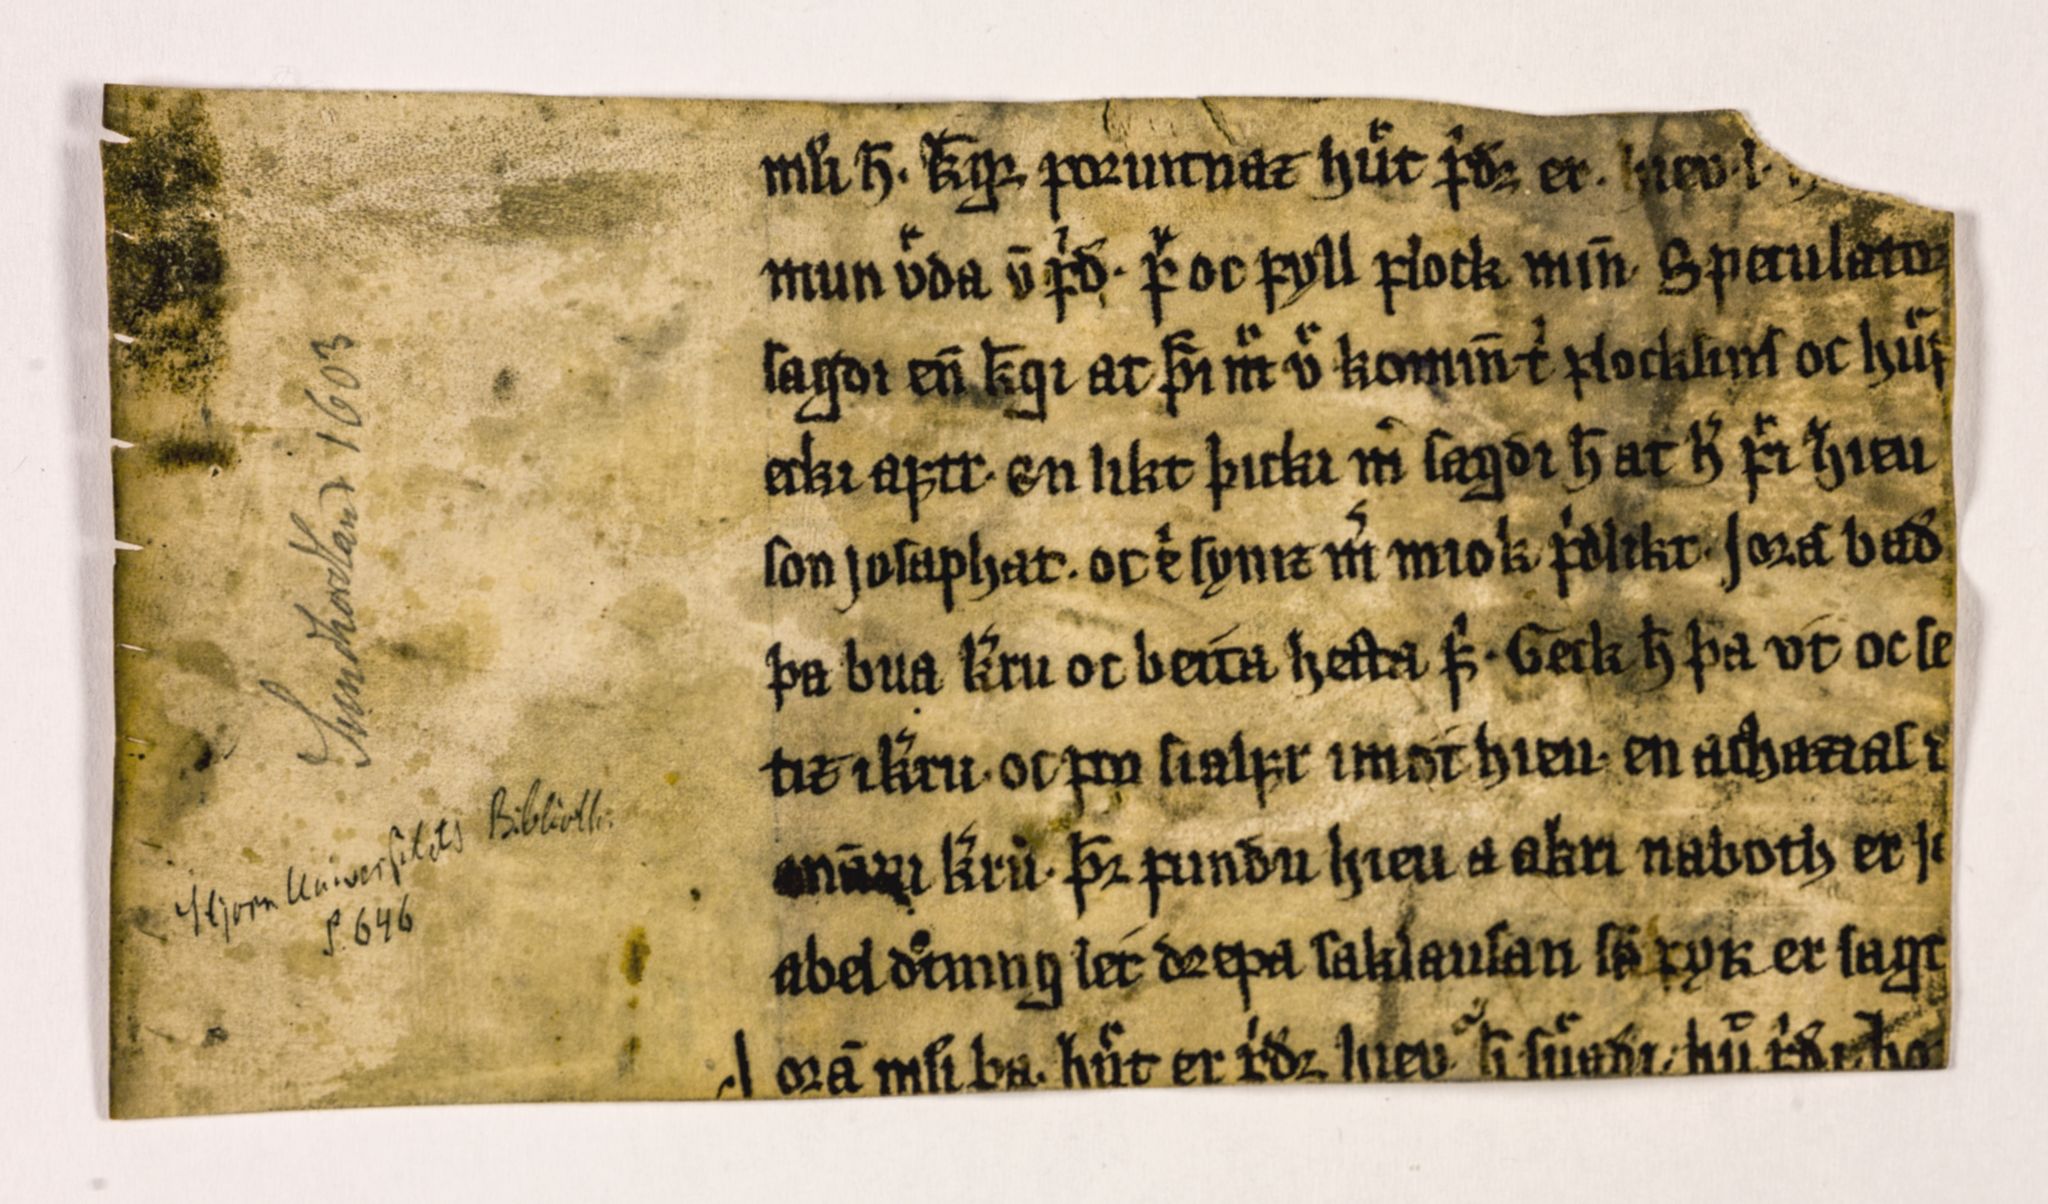 mli h̅. k̅gr foruitnaz huͣt f̍ðr er.
mun v͛da v̅ f̍ð. f͛ oc fyll flock min̅. Speculator
sagdi en̅ k̅gi at þr̅i m͛ v͛ komin̅ t̍ flocksins oc huͣrf
ecki aftr. En likt þicki m̍ sagdi h̅ at h͛ f͛i hieu
son josaphat. oc e͛ syniz m͛ miok f̍ðlikt. Jora̅ bað
þa bua k͛ru oc beita hesta f͛. Geck h̅ þa vt oc se
tiz i k͛ru. oc for sialfr imot hieu. en achazias i
k͛ru. þr̅ fundu hieu a akri naboth er je
abel dͦtning let drepa saklausan sē fyrr er sagt
Jora̅ mli ba. huͣt er f̍ðr hieu
Sundhordland 1603
Stjorn Universitets Biblioth.
S. 646